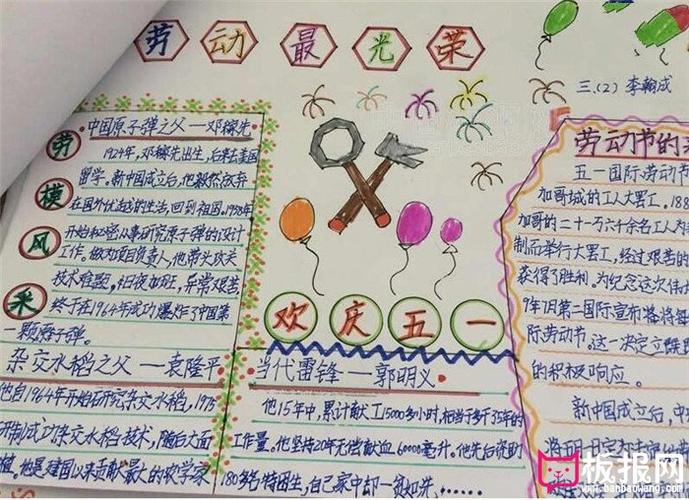 劳动最光荣
三.(2) 李翰成
中国原子弹之父—邓稼先
劳模风采
1924年，邓稼先出生，后来去美国
留学。新中国成立后，他毅然放弃
在国外优越的生活，回到祖国。1958年
开始秘密从事研究原子弹的设计
工作。做为项目负责人，他带头攻关
技术难题，日夜加班，异常艰苦
终于在1964年成功爆炸了中国第
一颗原子弹。
杂交水稻之父—袁隆平
他自1964年开始研究杂交水稻，1973
研制成功杂交水稻技术，
他是建国以来贡献最大的农学家
欢庆五一
当代雷锋—郭明义
他15年中，累计献工15000多小时，相当于多干5年的
工作量。他坚持20年无偿献血60000毫升。他先后资助
180多名特困生，自己家中却一贫如洗……
劳动节的
五一国际劳动节
加哥城的工人大罢工。188
加哥的二十一万六千余名工人为
制而举行大罢工，经过艰苦的
获得了胜利。为纪念这次伟
9年7月第二国际宣布将将每
际劳动节。这一决定立
的积极响应。
新中国成立后，中
板报网
www.banbaowang.com